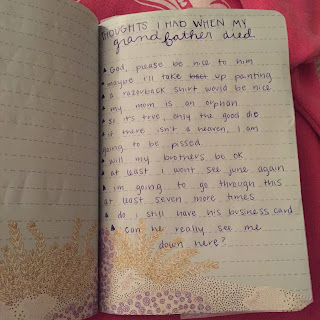 THOUGHTS I HAD WHEN MY
grandfather died
God, please be nice to him
maybe i'll take up painting
a razorback shirt would be nice
my mom is an orphan
so it's true, only the good die
if there isn't a heaven, i am
going to be pissed
will my brothers be ok
at least i won't see june again
im going to go through this
at least seven more times
do i still have his business card
can he really see me
down here?